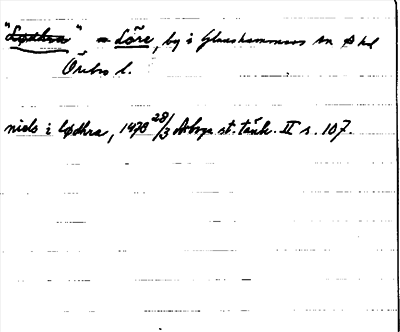 "Lødhra" = Löre, by i Glanshammars sn o hd
Örebro l.
niels i lødhra, 1473 28/3 Arboga st. tänk. II s. 107.